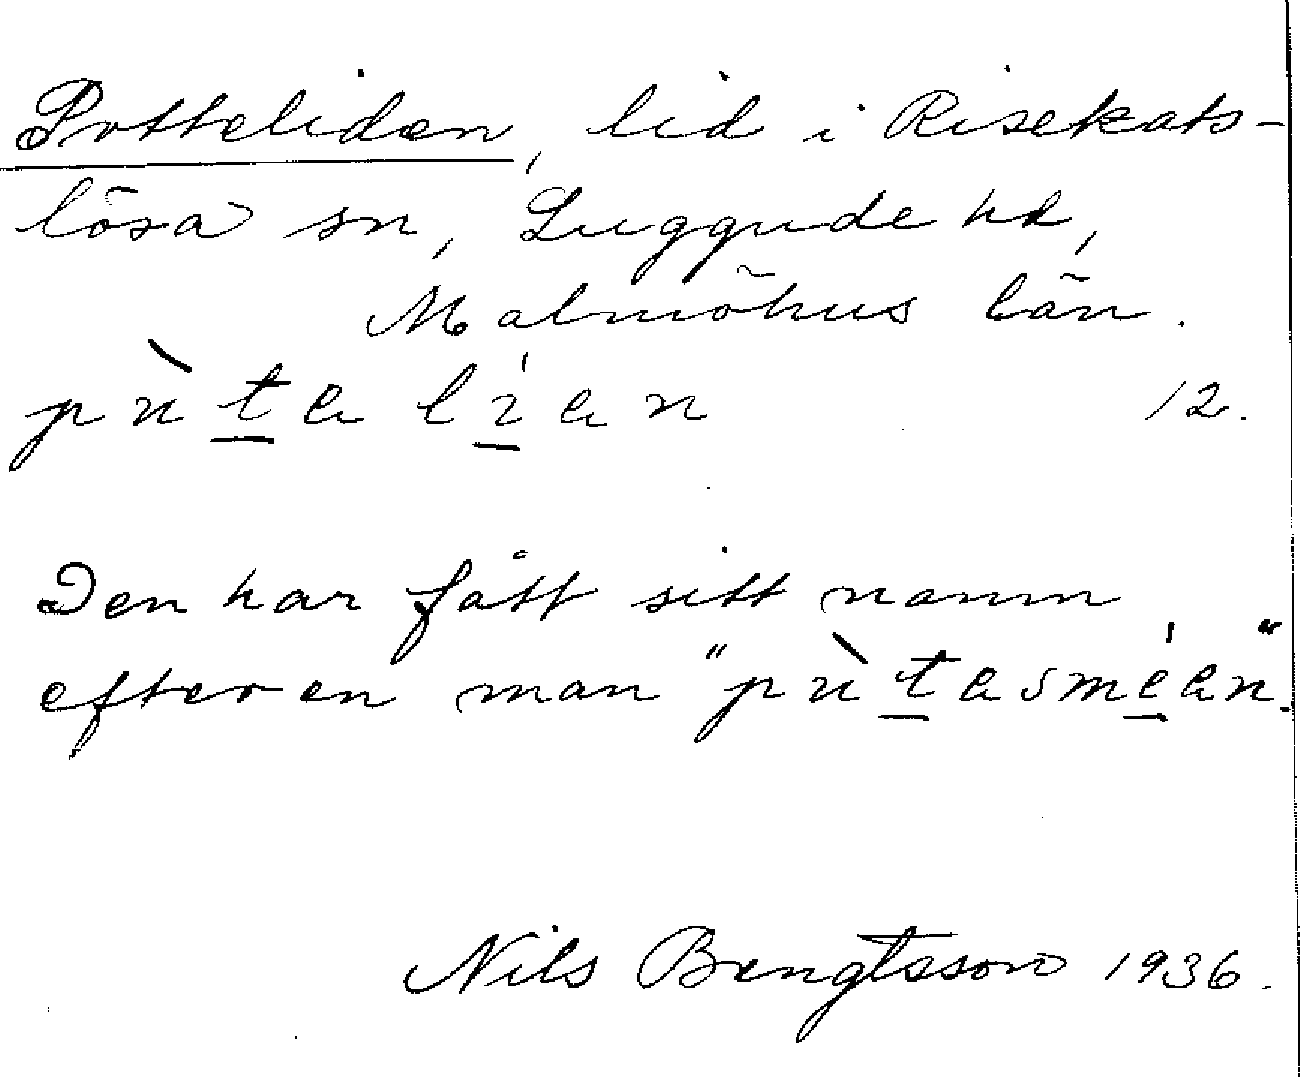 Potteliden, lid i Risekats-
lösa sn, Luggude hd,
Malmöhus län.
pùt̲a lí̲an 12.
Den har fått sitt namn
efter en man "pùt̲asmé̲an".
Nils Bengtsson 1936.